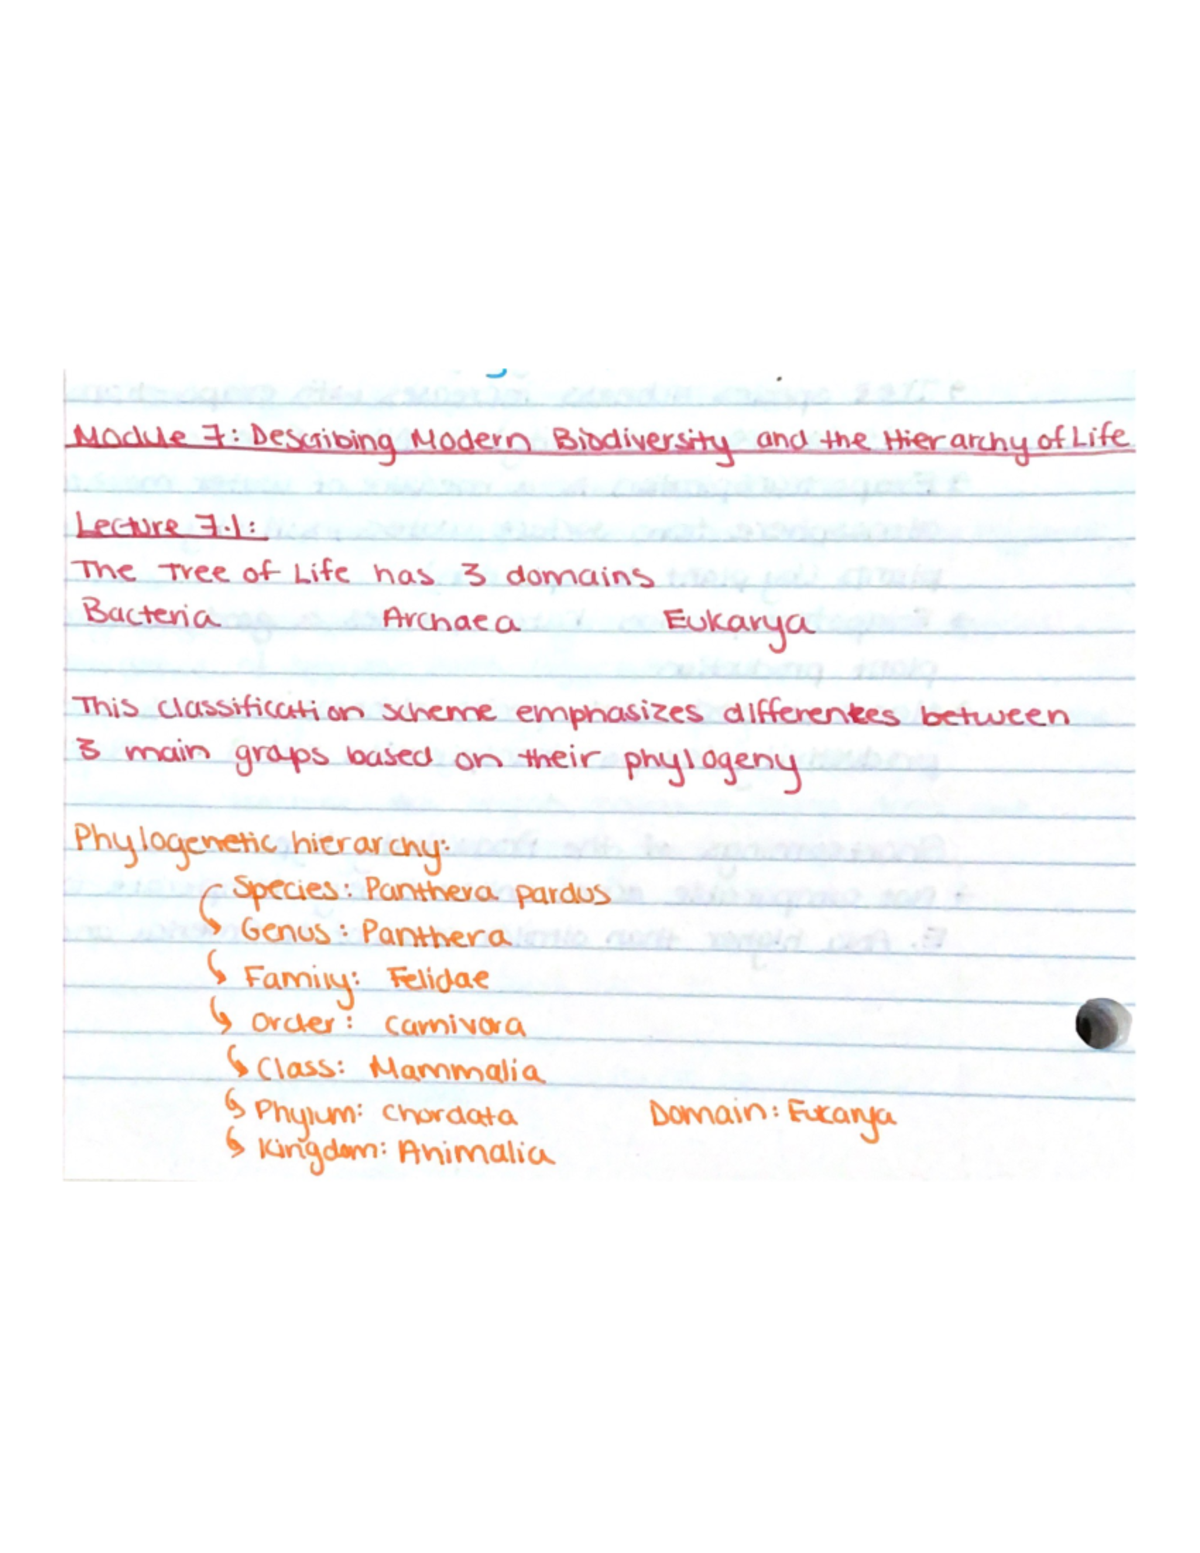 Module 7: Describing Modern Biodiversity and the Hierarchy of Life
Lecture 7.1:
The Tree of Life has 3 domains
Bacteria Archaea Eukarya
This classification scheme emphasizes differences between
3 main graps based on their phylogeny
Phylogenetic hierarchy:
Species: Panthera pardus
Genus: Panthera
Family: Felidae
Order: Carnivora
Class: Mammalia
Phylum: Chordata Domain: Eukarya
Kingdom: Animalia